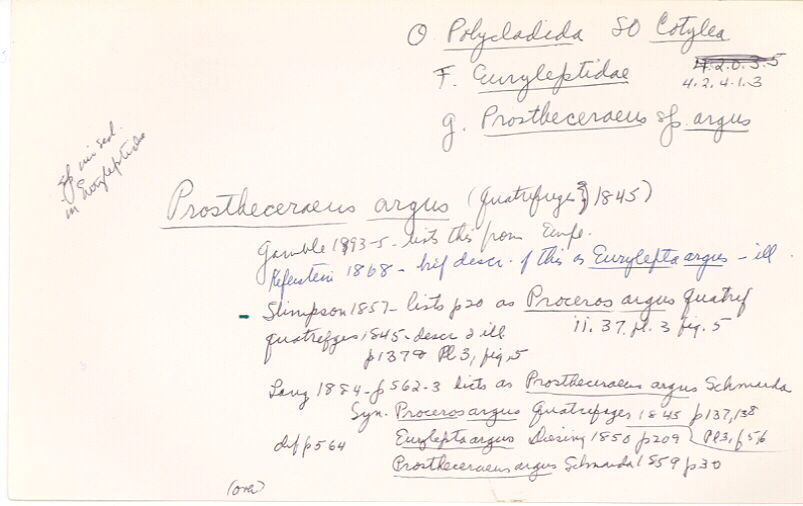 O. Polycladida SO Cotylea
F. Euryleptidae 4.2.0.3.5
4.2.4.1.3
g. Prostheceraeus sp argus
sp in sed.
in Euryleptidae
Prostheceraeus argus (Quatrefages, 1845)
Gamble 1893-5 - lists this from Europe.
Keferstein 1868 - brief descr. of this as Eurylepta argus - ill.
- Stimpson 1857 - lists p20 as Proceros argus Quatref
ii. 37. pl. 3 fig. 5
Quatrefges 1845 - descr & ill
p137 & Pl 3, fig. 5
Lang 1884 - p 562-3 lists as Prostheceraeus argus Schmarda
Syn. Proceros argus Quatrefages 1845 p137, 138
Pl 3, f 5, 6
def p 564 Eurylepta argus Diesing 1850 p 209
Prostheceraeus argus Schmarda 1859 p 30
(over)